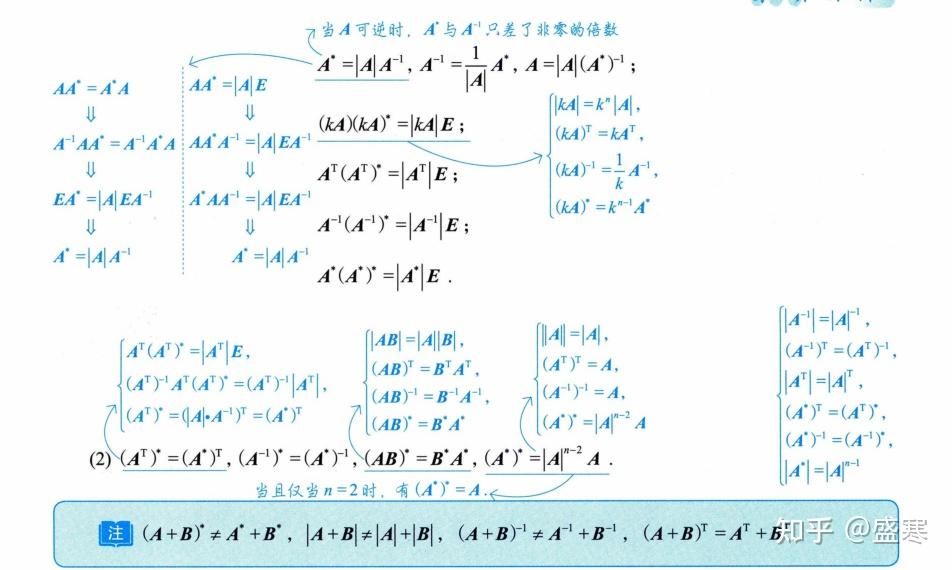 当A可逆时，A*与A⁻¹只差了非零的倍数
A* = |A|A⁻¹, A⁻¹ = 1/|A| A*, A = |A|(A*)⁻¹；
AA* = A*A
⇓
A⁻¹AA* = A⁻¹A*A
⇓
EA* = |A|EA⁻¹
⇓
A* = |A|A⁻¹
AA* = |A|E
⇓
AA*A⁻¹ = |A|EA⁻¹
⇓
A*AA⁻¹ = |A|EA⁻¹
⇓
A* = |A|A⁻¹
(kA)(kA)* = |kA|E；
Aᵀ(Aᵀ)* = |Aᵀ|E；
A⁻¹(A⁻¹)* = |A⁻¹|E；
A*(A*)* = |A*|E．
|kA| = kⁿ|A|,
(kA)ᵀ = kAᵀ,
(kA)⁻¹ = 1/k A⁻¹,
(kA)* = kⁿ⁻¹A*
Aᵀ(Aᵀ)* = |Aᵀ|E,
(Aᵀ)⁻¹Aᵀ(Aᵀ)* = (Aᵀ)⁻¹|Aᵀ|,
(Aᵀ)* = (|A|•A⁻¹)ᵀ = (A*)ᵀ
|AB| = |A||B|,
(AB)ᵀ = BᵀAᵀ,
(AB)⁻¹ = B⁻¹A⁻¹,
(AB)* = B*A*
||A|| = |A|,
(Aᵀ)ᵀ = A,
(A⁻¹)⁻¹ = A,
(A*)* = |A|ⁿ⁻² A
|A⁻¹| = |A|⁻¹,
(A⁻¹)ᵀ = (Aᵀ)⁻¹,
|Aᵀ| = |A|ᵀ,
(A*)ᵀ = (Aᵀ)*,
(A*)⁻¹ = (A⁻¹)*,
|A*| = |A|ⁿ⁻¹
(2) (Aᵀ)* = (A*)ᵀ, (A⁻¹)* = (A*)⁻¹, (AB)* = B*A*, (A*)* = |A|ⁿ⁻² A．
当且仅当n=2时，有(A*)* = A．
注 (A+B)* ≠ A* + B*, |A+B| ≠ |A|+|B|, (A+B)⁻¹ ≠ A⁻¹ + B⁻¹, (A+B)ᵀ = Aᵀ + Bᵀ
知乎 @盛寒